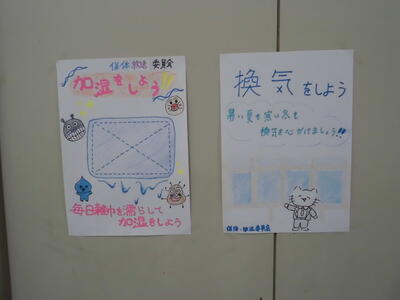 保体・放送 委員会
加湿をしよう
毎日雑巾を濡らして
加湿をしよう
換気をしよう
暑い夏も寒い冬も
換気を心がけましょう!!
保体・放送委員会